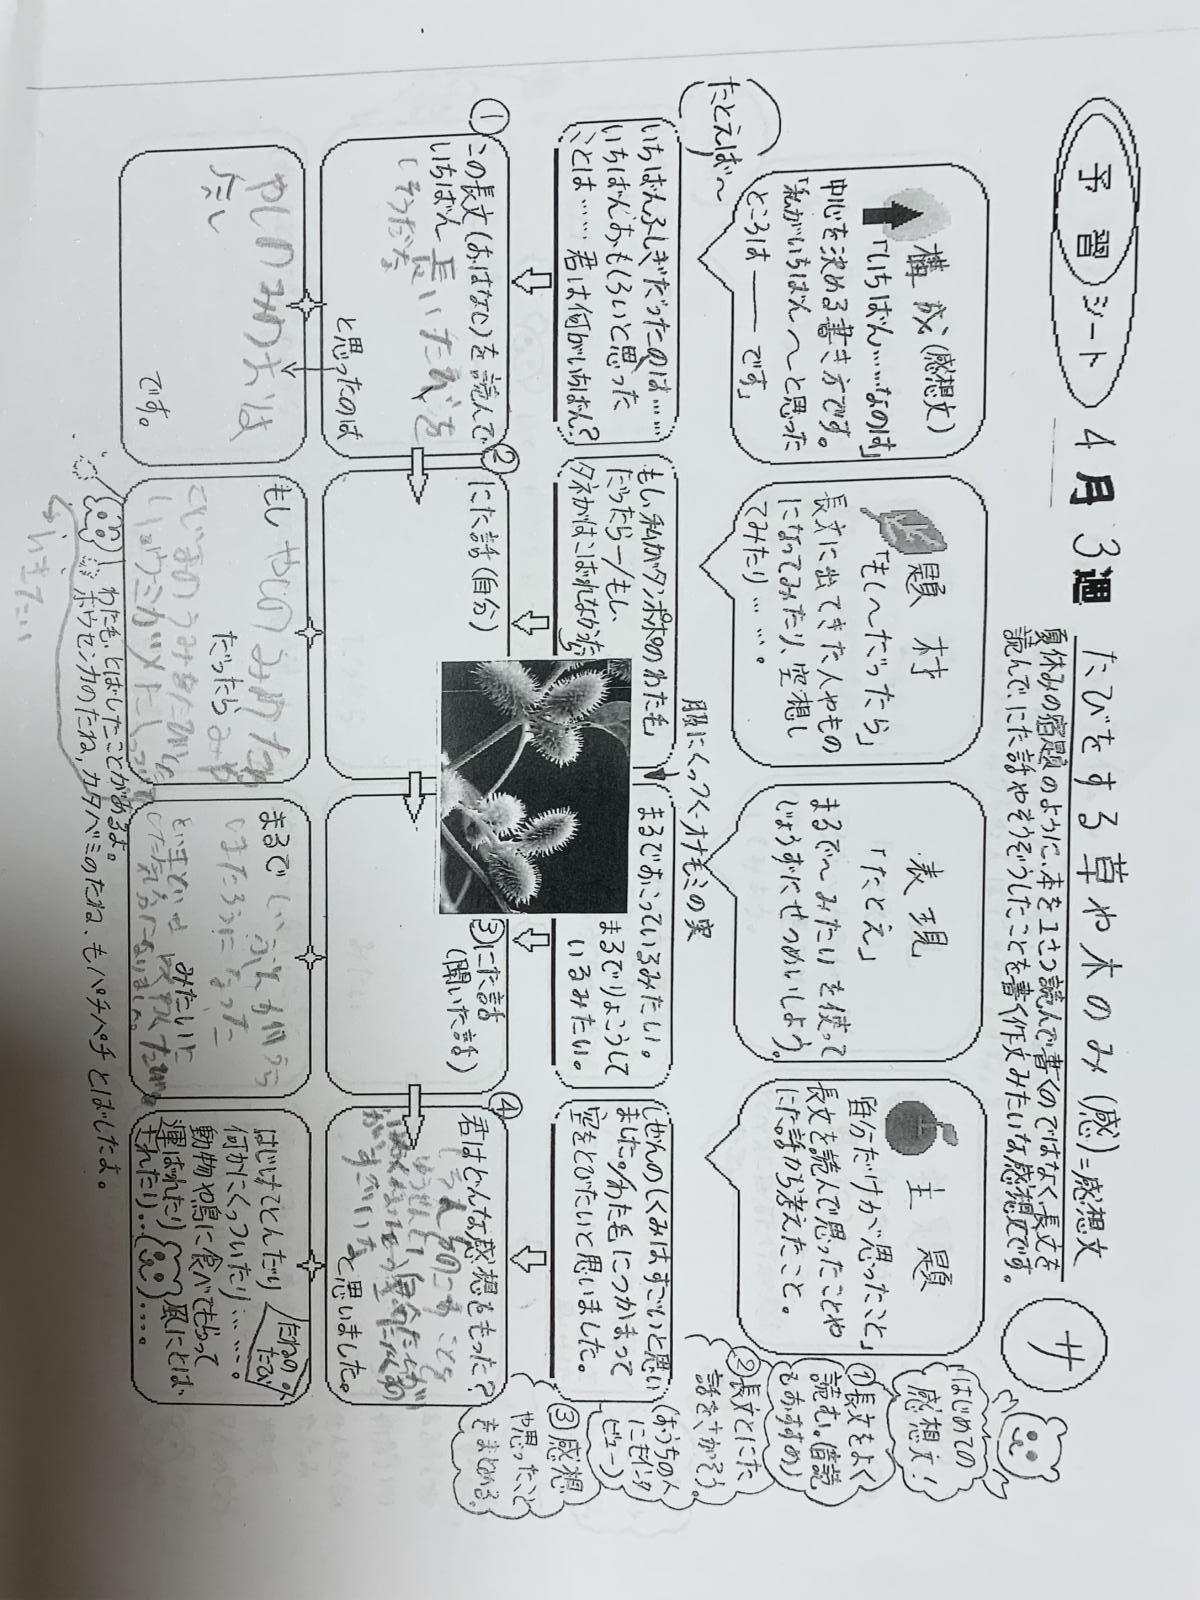 予習シート 4月3週 たびをする草や木のみ(感)=感想文
夏休みの宿題のように、本を1さつ読んで書くのではなく長文を
読んで、にた話やそうぞうしたことを書く作文みたいな感想文です。
サ
はじめての
感想文!
①長文をよく
読む。(音読
もおすすめ)
②長文とにた
話をさがそう。
(おうちの人
にもインタ
ビュー)
③感想
や思ったこと
をまとめる。
構成(感想文)
「いちばん……なのは」
中心を決める書き方です。
「私がいちばん〜と思った
ところは―です」
題材
「もし〜だったら」
長文に出てきた人やもの
になってみたり、空想し
てみたり……。
表現
「たとえ」
まるで〜みたいを使って
じょうずにせつめいしよう。
主題
自分だけが思ったこと」
長文を読んで思ったことや
にた話から考えたこと。
たとえば〜
服にくっつくオナモミの実
いちばんふしぎだったのは……
いちばんおもしろいと思った
ことは……君は何がいちばん?
もし、私がタンポポのわた毛
だったら―/もし、
タネがはこばれなかったら
まるでおこっているみたい。
まるでりょうして
いるみたい。
しぜんのしくみはすごいと思い
ました。/わた毛につかまって
空をとびたいと思いました。
①
この長文(おはなし)を読んで
いちばん長いたびを
しそうだな
と思ったのは
②
にた話(自分)
③にた話
(聞いた話)
④
君はどんな感想をもった?
すごいな
と思いました。
やしのみのは
です。
もしやしのみのたね
だったら
まるで
みたいに
たねの
たび
はじけてとんだり
何かにくっついたり……。
動物や鳥に食べてもらって
運ばれたり 風にとば
されたり……。
わた毛、とばしたことがあるよ。
ホウセンカのたね、カタバミのたね、もパチパチとばしたよ。
いきたい